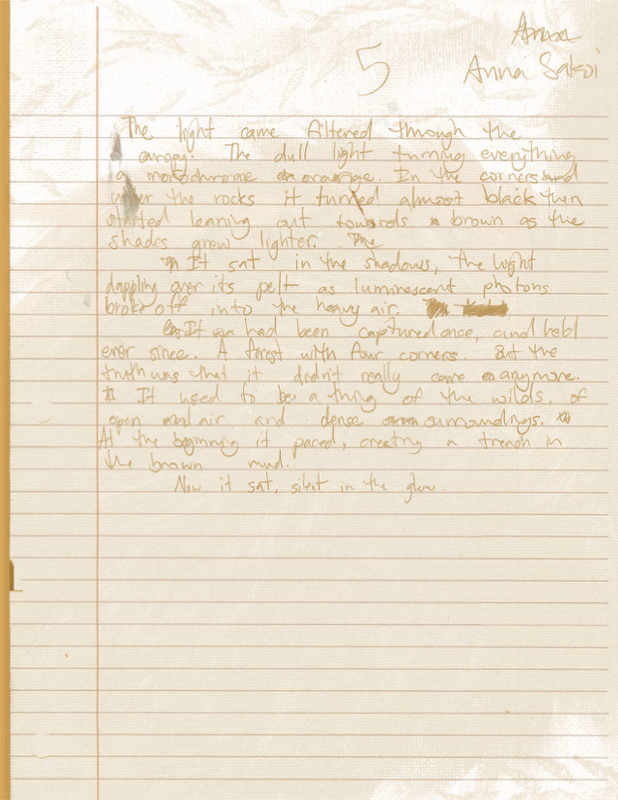 Anna
5
Anna Sakoi
The light came filtered through the
canopy. The dull light turning everything
a monochrome orange. In the corners and
under the rocks it turned almost black then
started leaning out towards brown as the
shades grew lighter. The
It sat in the shadows, the light
dappling over its pelt as luminescent photons
broke off into the heavy air.
It had been captured once, and held
ever since. A forest with four corners. But the
truth was that it didn't really care anymore.
It used to be a thing of the wilds, of
open and air and dense surroundings.
At the beginning it paced, creating a trench in
the brown mud.
Now it sat, silent in the glow.